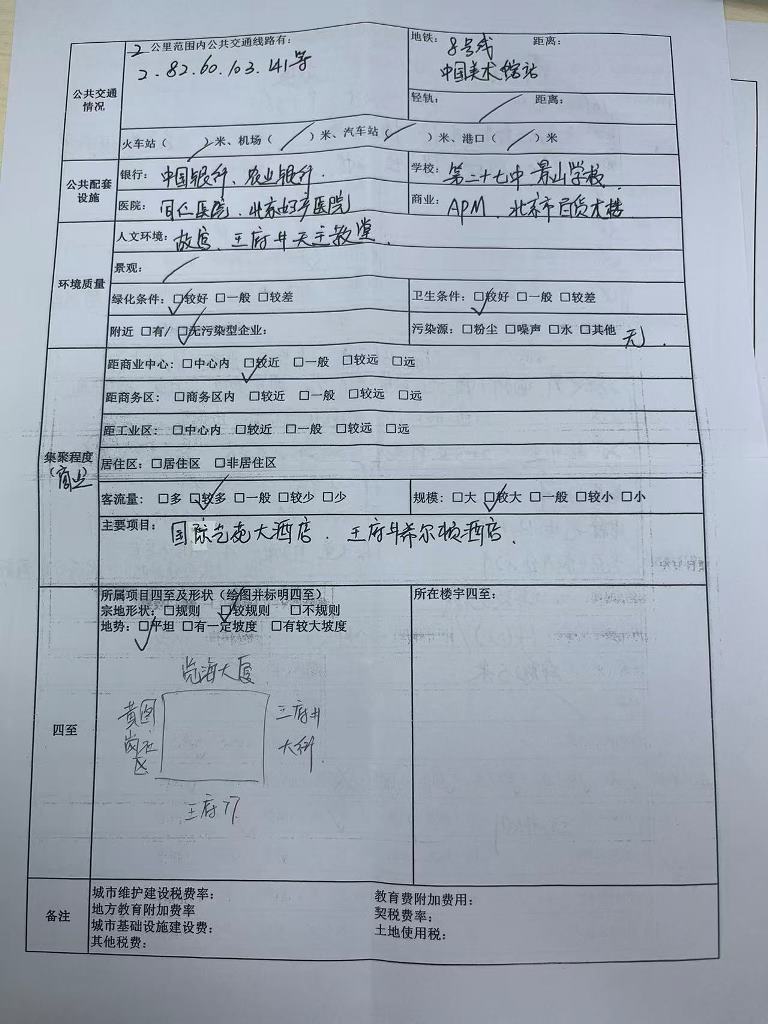 2 公里范围内公共交通线路有：
2.82.60.103.141等
地铁： 8号线 距离：
中国美术馆站
公共交通
情况
轻轨： 距离：
火车站（ ）米、机场（ ）米、汽车站（ ）米、港口（ ）米
公共配套
设施
银行： 中国银行、农业银行.
学校： 第二十七中 景山学校.
医院： 同仁医院、北京妇产医院
商业： APM、北京市百货大楼
环境质量
人文环境： 故宫、王府井天主教堂.
景观：
绿化条件：☑较好 □一般 □较差
卫生条件：☑较好 □一般 □较差
附近 □有/ ☑无污染型企业：
污染源：□粉尘 □噪声 □水 □其他 无.
集聚程度
（商业）
距商业中心：□中心内 ☑较近 □一般 □较远 □远
距商务区：□商务区内 □较近 □一般 □较远 □远
距工业区：□中心内 □较近 □一般 □较远 □远
居住区：□居住区 □非居住区
客流量：□多 ☑较多 □一般 □较少 □少
规模：□大 ☑较大 □一般 □较小 □小
主要项目： 国际艺苑大酒店. 王府井希尔顿酒店.
四至
所属项目四至及形状（绘图并标明四至）
宗地形状：□规则 ☑较规则 □不规则
地势：☑平坦 □有一定坡度 □有较大坡度
所在楼宇四至：
海大厦
黄图
岗社
区
王府井
大
王府
备注
城市维护建设税费率：
地方教育附加费率
城市基础设施建设费：
其他税费：
教育费附加费用：
契税费率；
土地使用税：